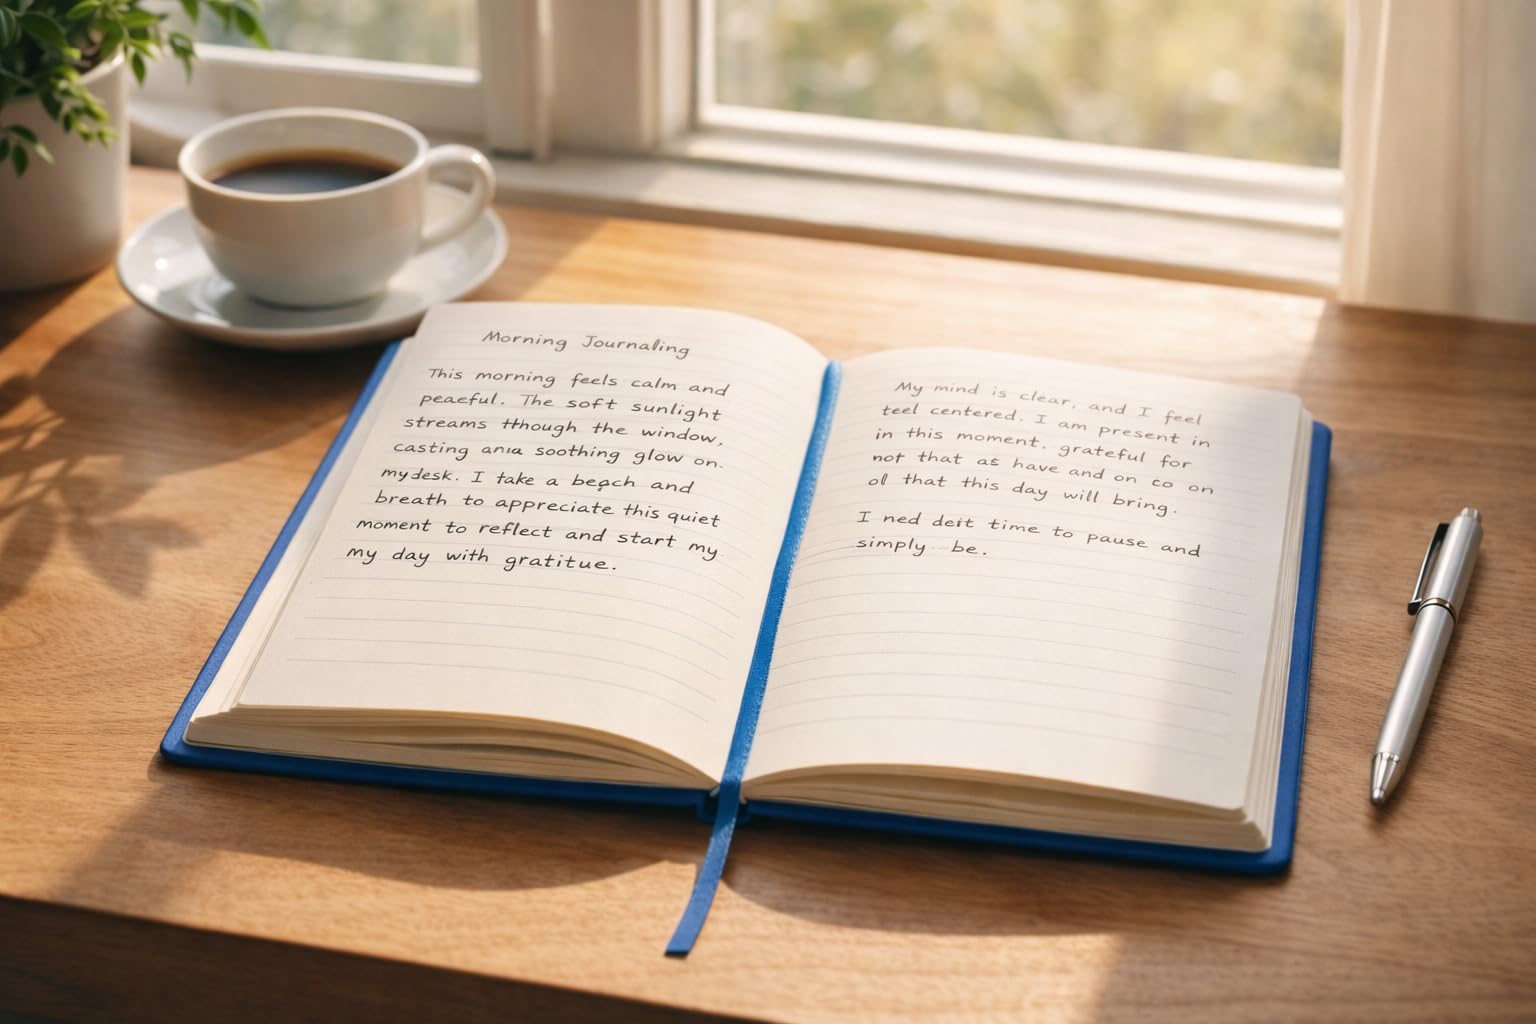 Morning Journaling
This morning feels calm and
peaeful. The soft sunlight
streams though the window,
casting soothing glow on.
my desk. I take a and
breath to appreciate this quiet
moment to reflect and start my
my day with gratitue.
My mind is clear, and I feel
teel centered. I am present in
in this moment. grateful for
not that as have and on co on
of that this day will bring.
I ned deit time to pause and
simply be.